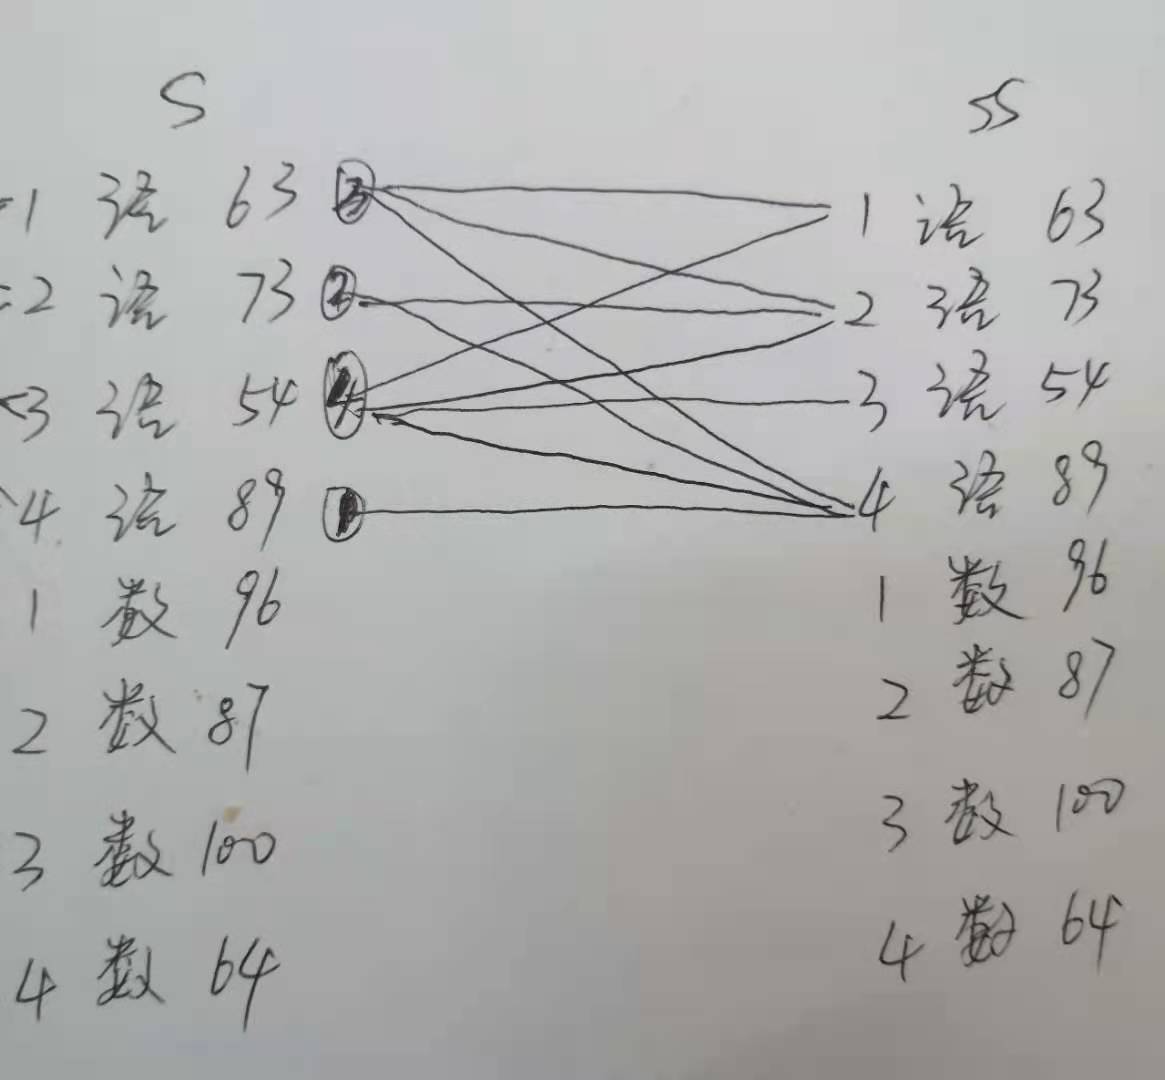 S ss
1 语 63 3 1 语 63
2 语 73 2 2 语 73
3 语 54 4 3 语 54
4 语 89 1 4 语 89
1 数 96 1 数 96
2 数 87 2 数 87
3 数 100 3 数 100
4 数 64 4 数 64